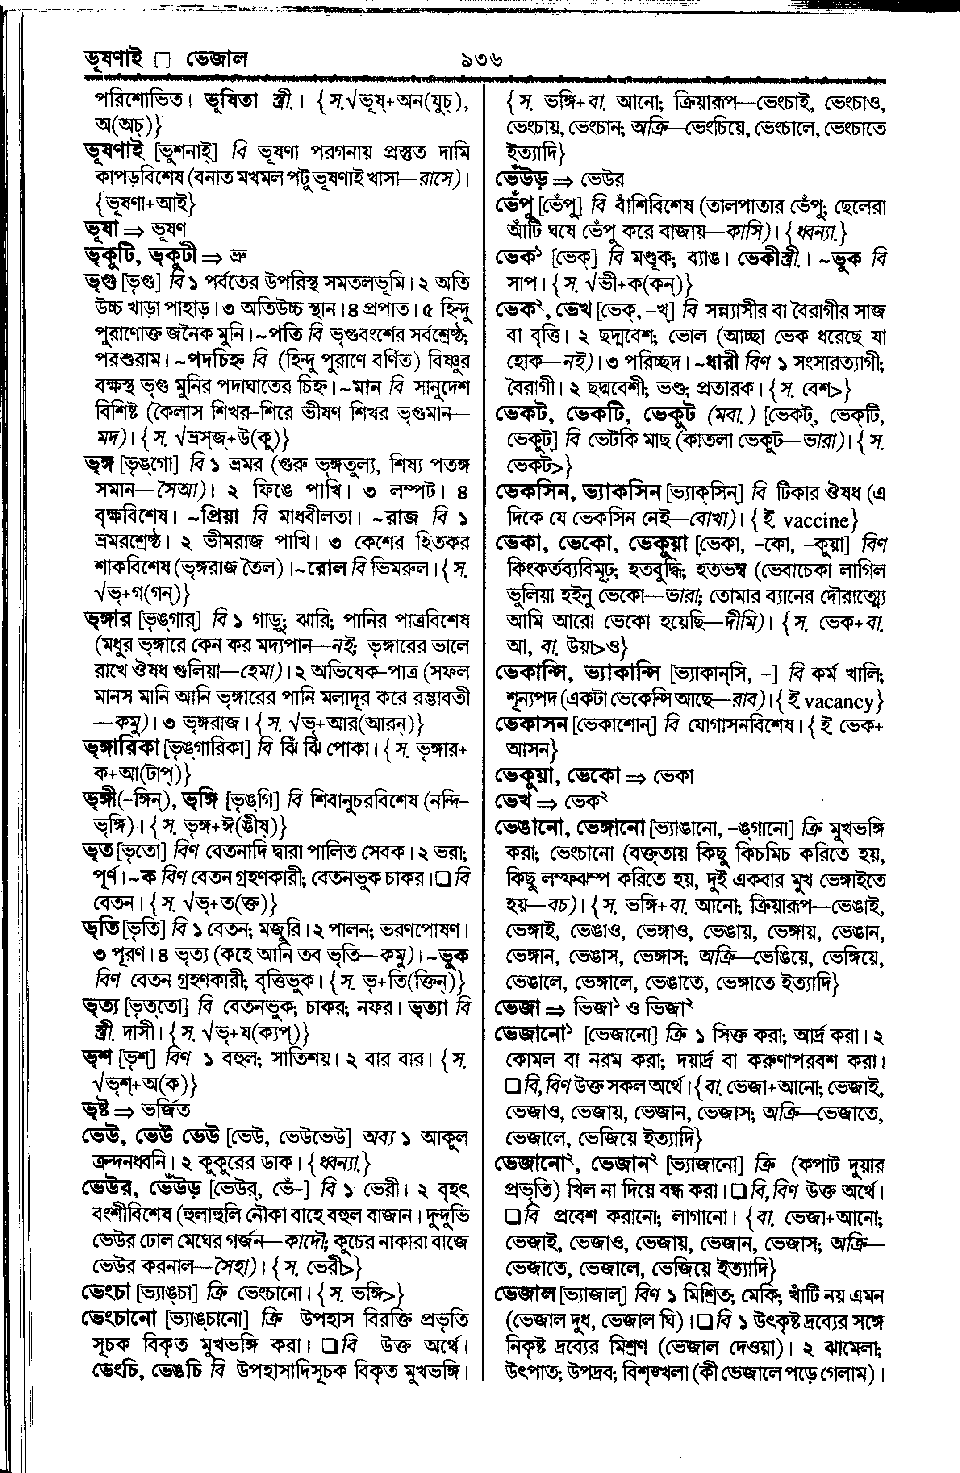 ভূষণাই □ ভেজাল
৯৩৬
পরিশোভিত। ভূষিতা স্ত্রী.। {স.√ভূষ্+অন(যুচ্),
অ(অচ্)}
ভূষণাই [ভুশনাই্] বি ভূষণা পরগনায় প্রস্তুত দামি
কাপড়বিশেষ (বনাত মখমল পট্টু ভূষণাই খাসা—রাসে)।
{ভূষণা+আই}
ভূষা ⇒ ভূষণ
ভূকুটি, ভূকুটী ⇒ ভ্রু
ভৃগু [ভৃগু] বি ১ পর্বতের উপরিস্থ সমতলভূমি। ২ অতি
উচ্চ খাড়া পাহাড়। ৩ অতিউচ্চ স্থান। ৪ প্রপাত। ৫ হিন্দু
পুরাণোক্ত জনৈক মুনি। ~পতি বি ভৃগুবংশের সর্বশ্রেষ্ঠ;
পরশুরাম। ~পদচিহ্ন বি (হিন্দু পুরাণে বর্ণিত) বিষ্ণুর
বক্ষস্থ ভৃগু মুনির পদাঘাতের চিহ্ন। ~মান বি সানুদেশ
বিশিষ্ট (কৈলাস শিখর-শিরে ভীষণ শিখর ভৃগুমান—
মদ)। {স. √ভ্রস্জ্+উ(কু)}
ভৃঙ্গ [ভৃঙ্গো] বি ১ ভ্রমর (গুরু ভৃঙ্গতুল্য, শিষ্য পতঙ্গ
সমান—সৈআ)। ২ ফিঙে পাখি। ৩ লম্পট। ৪
বৃক্ষবিশেষ। ~প্রিয়া বি মাধবীলতা। ~রাজ বি ১
ভ্রমরশ্রেষ্ঠ। ২ ভীমরাজ পাখি। ৩ কেশের হিতকর
শাকবিশেষ (ভৃঙ্গরাজ তৈল)। ~রোল বি ভিমরুল। {স.
√ভৃ+গ(গন্)}
ভৃঙ্গার [ভৃঙ্গার্] বি ১ গাড়ু; ঝারি; পানির পাত্রবিশেষ
(মধুর ভৃঙ্গারে কেন কর মদ্যপান—নই; ভৃঙ্গারের ভালে
রাখে ঔষধ গুলিয়া—হেমা)। ২ অভিষেক-পাত্র (সফল
মানস মানি আনি ভৃঙ্গারের পানি মলাদূর করে রম্ভাবতী
—কমু)। ৩ ভৃঙ্গরাজ। {স. √ভৃ+আর(আরন্)}
ভৃঙ্গারিকা [ভৃঙ্গারিকা] বি ঝিঁ ঝিঁ পোকা। {স. ভৃঙ্গার+
ক+আ(টাপ্)}
ভৃঙ্গী(-ঙ্গিন্), ভৃঙ্গি [ভৃঙ্গি] বি শিবানুচরবিশেষ (নন্দি-
ভৃঙ্গি)। {স. ভৃঙ্গ+ঈ(ঙীষ্)}
ভৃত [ভৃতো] বিণ বেতনাদি দ্বারা পালিত সেবক। ২ ভরা;
পূর্ণ। ~ক বিণ বেতন গ্রহণকারী; বেতনভুক চাকর। □ বি
বেতন। {স. √ভৃ+ত(ক্ত)}
ভৃতি [ভৃতি] বি ১ বেতন; মজুরি। ২ পালন; ভরণপোষণ।
৩ পূরণ। ৪ ভৃত্য (কহে আনি তব ভৃতি—কমু)। ~ভুক
বিণ বেতন গ্রহণকারী; বৃত্তিভুক। {স. ভৃ+তি(ক্তিন্)}
ভৃত্য [ভৃত্তো] বি বেতনভুক, চাকর; নফর। ভৃত্যা বি
স্ত্রী. দাসী। {স. √ভৃ+য(ক্যপ্)}
ভৃশ [ভৃশ্] বিণ ১ বহুল; সাতিশয়। ২ বার বার। {স.
√ভৃশ্+অ(ক)}
ভৃষ্ট ⇒ ভর্জিত
ভেউ, ভেউ ভেউ [ভেউ, ভেউভেউ] অব্য ১ আকুল
ক্রন্দনধ্বনি। ২ কুকুরের ডাক। {ধ্বন্যা.}
ভেউর, ভেঁউড় [ভেউর্, ভেঁ-] বি ১ ভেরী। ২ বৃহৎ
বংশীবিশেষ (হুলাহুলি নৌকা বাহে বহুল বাজান। দুন্দুভি
ভেউর ঢোল মেঘের গর্জন—কাদৌ; কুচের নাকারা বাজে
ভেউর করনাল—সৈহা)। {স. ভেরী>}
ভেংচা [ভ্যাঙ্চা] ক্রি ভেংচানো। {স. ভঙ্গি>}
ভেংচানো [ভ্যাঙ্চানো] ক্রি উপহাস বিরক্তি প্রভৃতি
সূচক বিকৃত মুখভঙ্গি করা। □ বি উক্ত অর্থে।
ভেংচি, ভেঙচি বি উপহাসাদিসূচক বিকৃত মুখভঙ্গি।
{স. ভঙ্গি+বা. আনো; ক্রিয়ারূপ—ভেংচাই, ভেংচাও,
ভেংচায়, ভেংচান; অক্রি—ভেংচিয়ে, ভেংচালে, ভেংচাতে
ইত্যাদি}
ভেঁউড় ⇒ ভেউর
ভেঁপু [ভেঁপু] বি বাঁশিবিশেষ (তালপাতার ভেঁপু; ছেলেরা
আঁটি ঘষে ভেঁপু করে বাজায়—কাসি)। {ধ্বন্যা.}
ভেক১ [ভেক্] বি মণ্ডূক; ব্যাঙ। ভেকীস্ত্রী.। ~ভুক বি
সাপ। {স. √ভী+ক(কন্)}
ভেক২, ভেখ [ভেক্, -খ্] বি সন্ন্যাসীর বা বৈরাগীর সাজ
বা বৃত্তি। ২ ছদ্মবেশ; ভোল (আচ্ছা ভেক ধরেছে যা
হোক—নই)। ৩ পরিচ্ছদ। ~ধারী বিণ ১ সংসারত্যাগী;
বৈরাগী। ২ ছদ্মবেশী; ভণ্ড; প্রতারক। {স. বেশ>}
ভেকট, ভেকটি, ভেকুট (মবা.) [ভেকট্, ভেক্টি,
ভেকুট্] বি ভেটকি মাছ (কাতলা ভেকুট—ভারা)। {স.
ভেকট>}
ভেকসিন, ভ্যাকসিন [ভ্যাক্সিন্] বি টিকার ঔষধ (এ
দিকে যে ভেকসিন নেই—বোখা)। {ই vaccine}
ভেকা, ভেকো, ভেকুয়া [ভেকা, -কো, -কুয়া] বিণ
কিংকর্তব্যবিমূঢ়; হতবুদ্ধি; হতভম্ব (ভেবাচেকা লাগিল
ভুলিয়া হইনু ভেকো—ভারা; তোমার ব্যানের দৌরাত্ম্যে
আমি আরো ভেকো হয়েছি—দীমি)। {স. ভেক+বা.
আ, বা. উয়া>ও}
ভেকান্সি, ভ্যাকান্সি [ভ্যাকান্‌সি, -] বি কর্ম খালি;
শূন্যপদ (একটা ভেকেন্সি আছে—রাব)। {ই vacancy}
ভেকাসন [ভেকাশোন্] বি যোগাসনবিশেষ। {ই ভেক+
আসন}
ভেকুয়া, ভেকো ⇒ ভেকা
ভেখ ⇒ ভেক২
ভেঙানো, ভেঙ্গানো [ভ্যাঙানো, -ঙ্গানো] ক্রি মুখভঙ্গি
করা; ভেংচানো (বক্তৃতায় কিছু কিচমিচ করিতে হয়,
কিছু লম্ফঝম্প করিতে হয়, দুই একবার মুখ ভেঙ্গাইতে
হয়—বচ)। {স. ভঙ্গি+বা. আনো; ক্রিয়ারূপ—ভেঙাই,
ভেঙ্গাই, ভেঙাও, ভেঙ্গাও, ভেঙায়, ভেঙ্গায়, ভেঙান,
ভেঙ্গান, ভেঙাস, ভেঙ্গাস; অক্রি—ভেঙিয়ে, ভেঙ্গিয়ে,
ভেঙালে, ভেঙ্গালে, ভেঙাতে, ভেঙ্গাতে ইত্যাদি}
ভেজা ⇒ ভিজা১ ও ভিজা২
ভেজানো১ [ভেজানো] ক্রি ১ সিক্ত করা; আর্দ্র করা। ২
কোমল বা নরম করা; দয়ার্দ্র বা করুণাপরবশ করা।
□ বি, বিণ উক্ত সকল অর্থে। {বা. ভেজা+আনো; ভেজাই,
ভেজাও, ভেজায়, ভেজান, ভেজাস; অক্রি—ভেজাতে,
ভেজালে, ভেজিয়ে ইত্যাদি}
ভেজানো২, ভেজান২ [ভ্যাজানো] ক্রি (কপাট দুয়ার
প্রভৃতি) খিল না দিয়ে বন্ধ করা। □ বি, বিণ উক্ত অর্থে।
□ বি প্রবেশ করানো; লাগানো। {বা. ভেজা+আনো;
ভেজাই, ভেজাও, ভেজায়, ভেজান, ভেজাস; অক্রি—
ভেজাতে, ভেজালে, ভেজিয়ে ইত্যাদি}
ভেজাল [ভ্যাজাল্] বিণ ১ মিশ্রিত; মেকি; খাঁটি নয় এমন
(ভেজাল দুধ, ভেজাল ঘি)। □ বি ১ উৎকৃষ্ট দ্রব্যের সঙ্গে
নিকৃষ্ট দ্রব্যের মিশ্রণ (ভেজাল দেওয়া)। ২ ঝামেলা;
উৎপাত; উপদ্রব; বিশৃঙ্খলা (কী ভেজালে পড়ে গেলাম)।